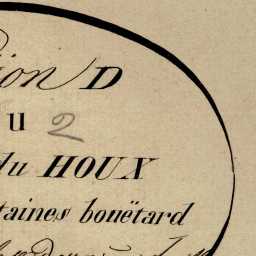 ion D
u 2
du HOUX
taines bouëtard